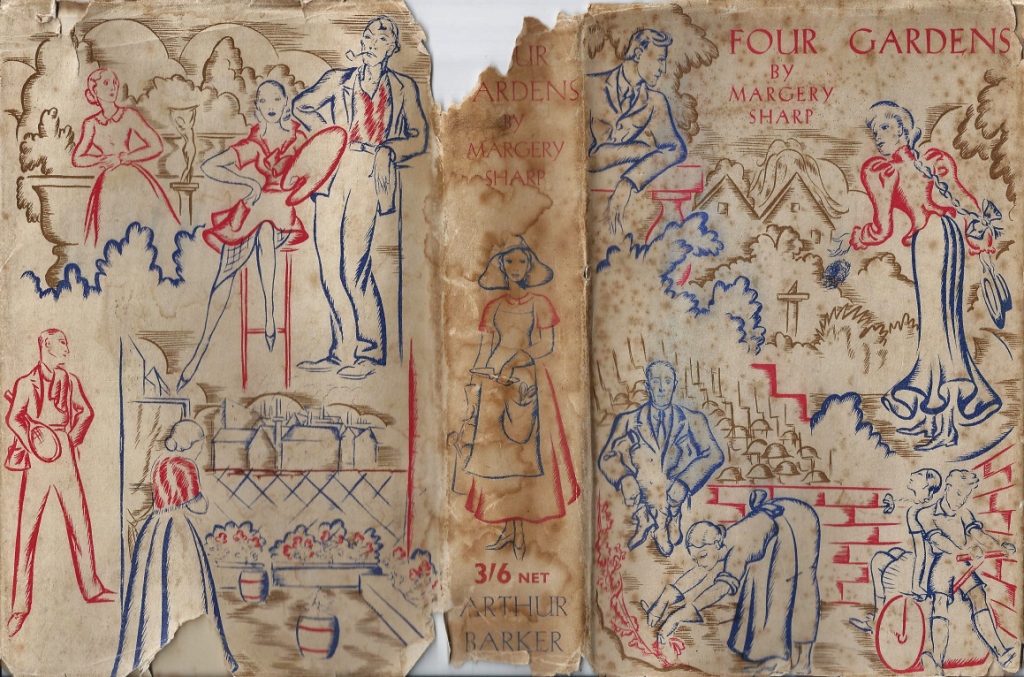 UR
ARDENS
BY
MARGERY
SHARP
3/6 NET
ARTHUR
BARKER
FOUR GARDENS
BY
MARGERY
SHARP